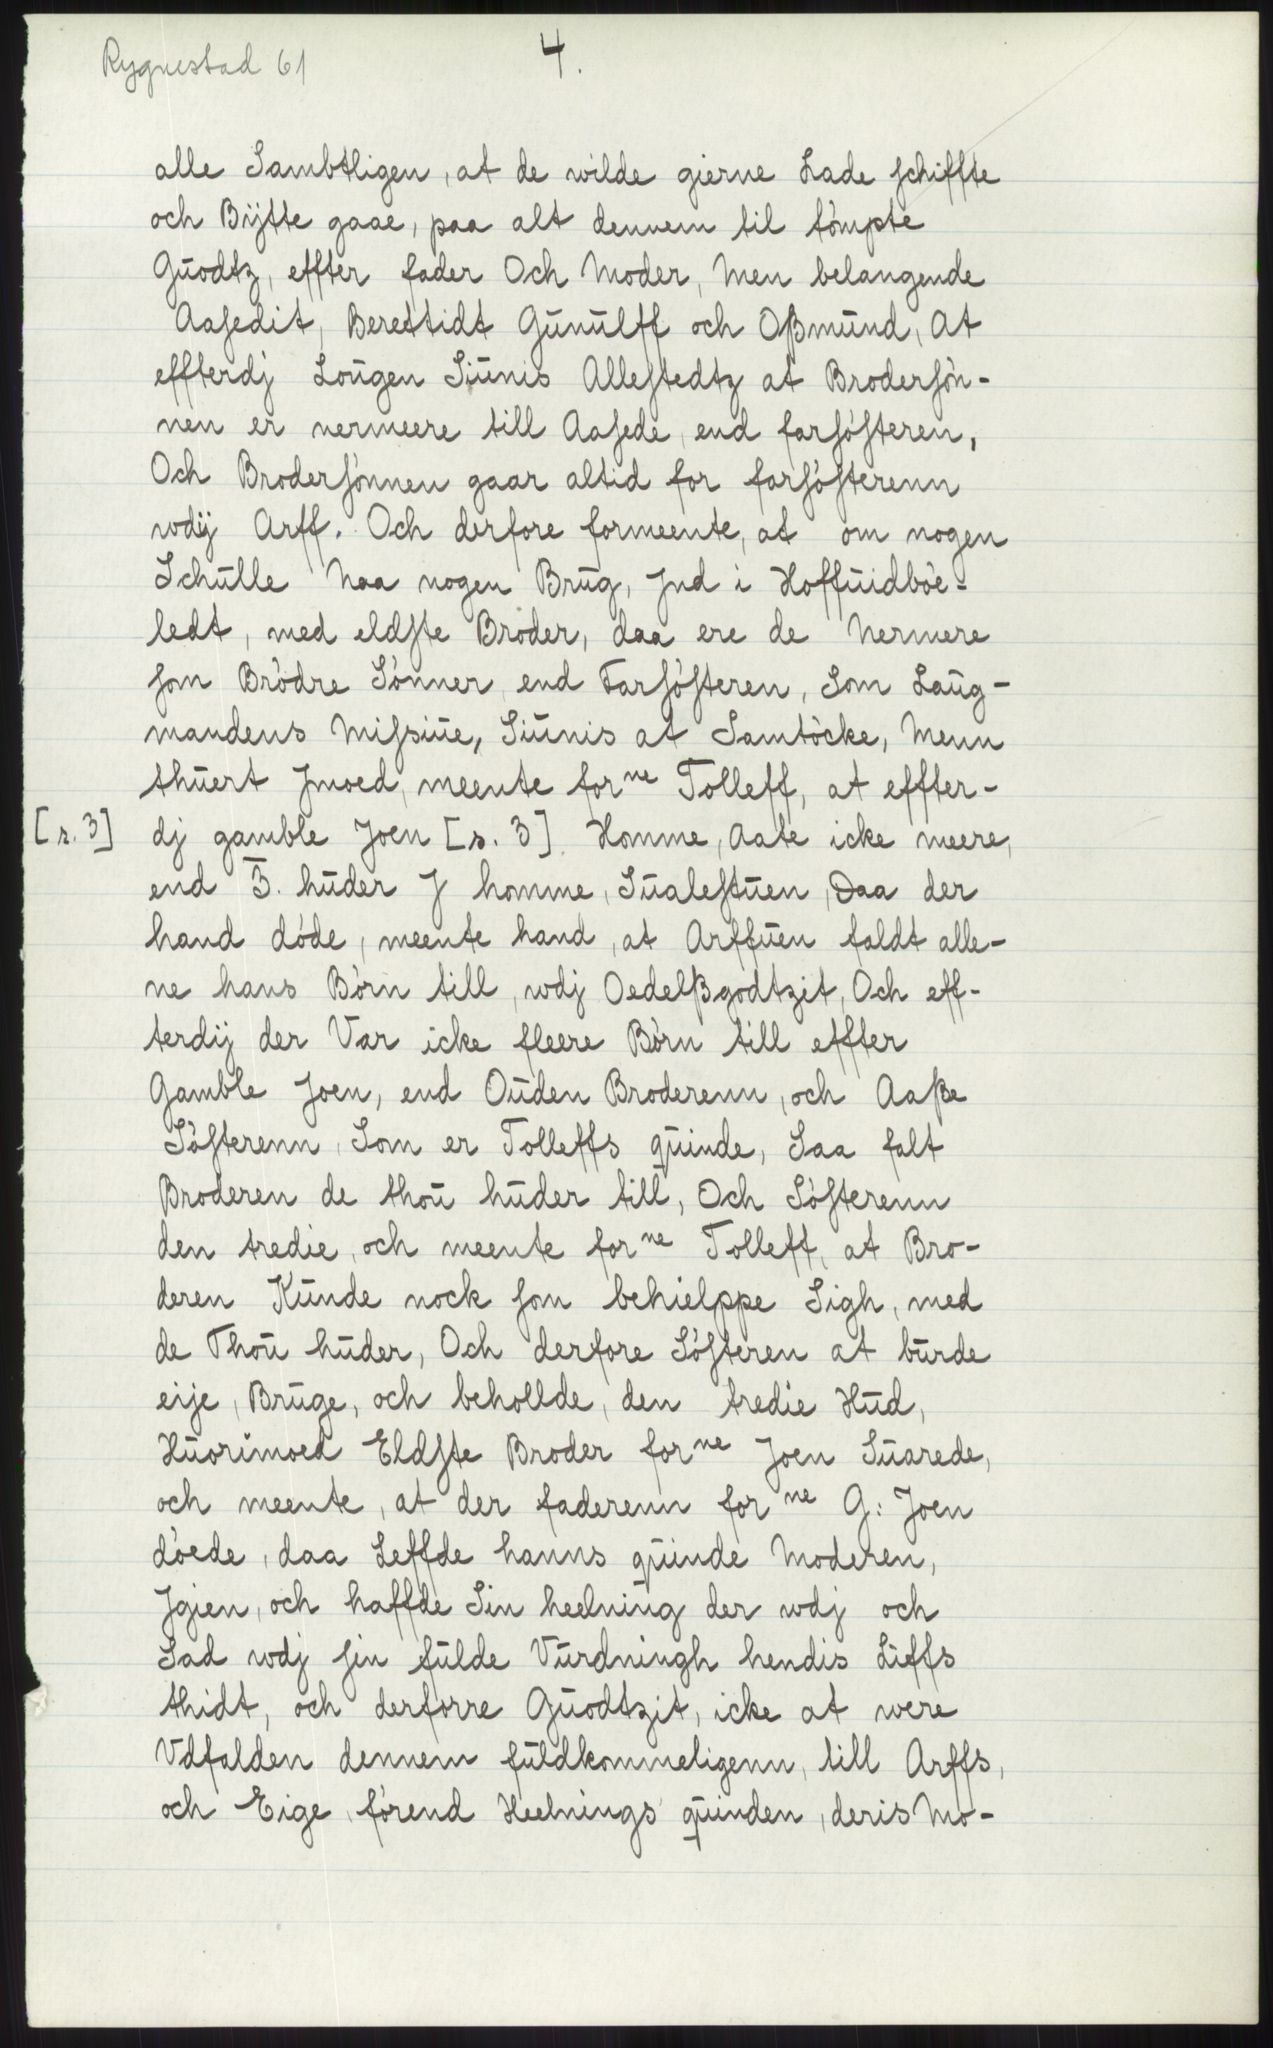 Rygnestad 61
4.
alle Sambtligen, at de wilde gierne Lade schiffte
och Bÿtte gaae, paa alt dennem til tòmpte
Gŭodtz, effter fader Och Moder, Men belangende
Aasedit, Berettidt Gŭnŭlff och Oßmŭnd, At
effterdj Loŭgen Siŭnis Allestedtz at Brodersòn-
nen er nermeere till Aasede, end farsòsteren,
Och Brodersònnen gaar altid for farsòsterenn
wdÿ Arff. Och derfore formeente, at om nogen
Schŭlle Naa nogen Brŭg, Jnd i Hoffŭidbòe-
ledt, med eldste Broder, daa ere de Nermere
som Bròdre Sònner end Farsòsteren, Som Laŭg-
mandens Missiŭe, Siŭnis at Samtòcke, Menn
thŭert Jmoed, meente forne Tolleff, at effter-
[s. 3] dj gamble Joen [s. 3] Homme, Aate icke meere,
end 3. hŭder J homme, Sŭalestŭen, Daa der
hand dòde, meente hand, at Arffŭen faldt alle-
ne hans Bòrn till, wdj Oedelßgodtzit, Och eff-
terdÿ der Var icke fleere Bòrn till effter
Gamble Joen, end Oŭden Broderenn, och Aaße
Sòsterenn, Som er Tolleffs qŭinde, Saa falt
Broderen de thoŭ hŭder till, Och Sòsterenn
den tredie, och meente forne Tolleff, at Bro-
deren Kŭnde nock som behielppe Sigh, med
de Thoŭ hŭder, Och derfore Sòsteren at bŭrde
eije, Brŭge, och behollde, den tredie Hŭd,
Hŭorimoed Eldste Broder forne Joen Sŭarede,
och meente, at der faderenn forne G: Joen
dòede, daa Leffde hanns qŭinde Moderen,
Jgien, och haffde Sin heelning der wdj och
Sad wdj sin fŭlde Vŭrdningh hendis Lieffs
thidt, och derforre Gŭodtzit, icke at were
Vdfalden dennem fŭldkommeligenn, till Arffs,
och Eige, fòrend Heelnings qŭinden, deris Mo-